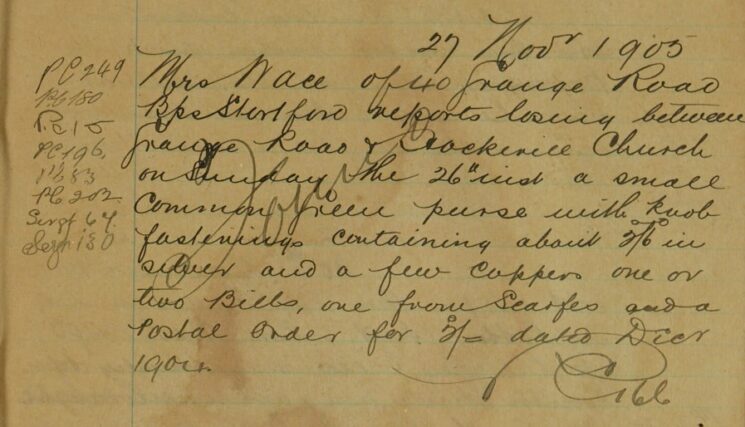 27 Novr 1905
PC 249
PC 180
PC 15
PC 196
PC 83
PC 202
Sergt 64
Sergt 130
Mrs Wace of 40 Grange Road
Bps Stortford reports losing between
Grange Road & Hockerill Church
on Sunday the 26th inst a small
common green purse with knob
fastenings containing about 2/6 in
silver and a few coppers one or
two Bills, one from Scarfes and a
Postal Order for 2/= dated Decr
1904.